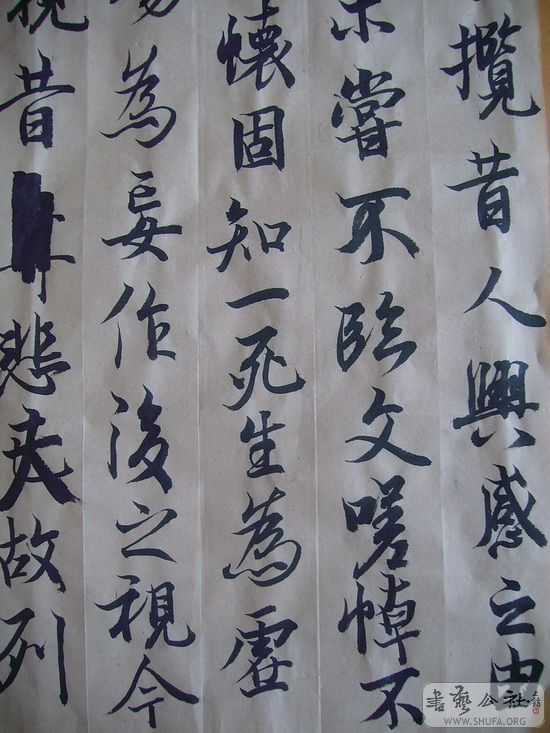 攬昔人興感之由
未嘗不臨文嗟悼不
懷固知一死生為虛
為妄作後之視今
視昔悲夫故列
書藝公社
WWW.SHUFA.ORG